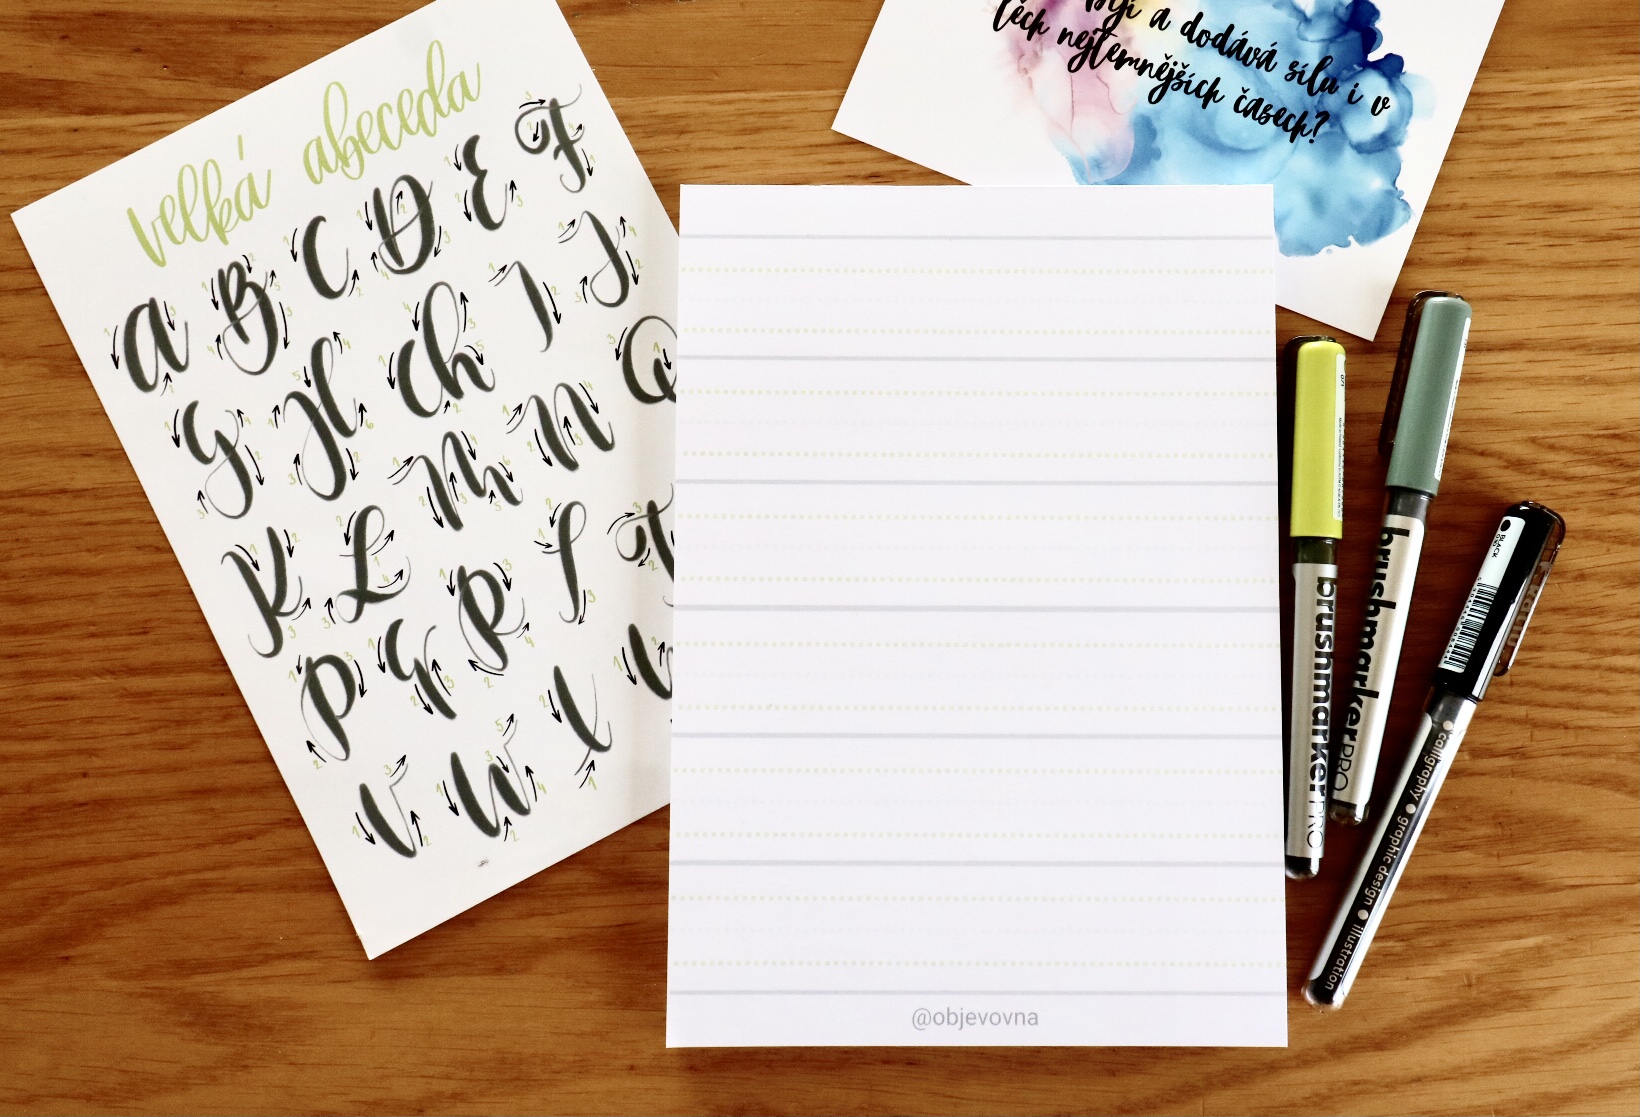 velká abeceda
A B C D E F
G H Ch I J
K L M N Q
P G R S T
V W X U
ději a dodává sílu i v
těch nejtemnějších časech?
@objevovna
brushmarkerPRO
brushmarkerPRO
BLACK
• calligraphy • graphic design • illustration